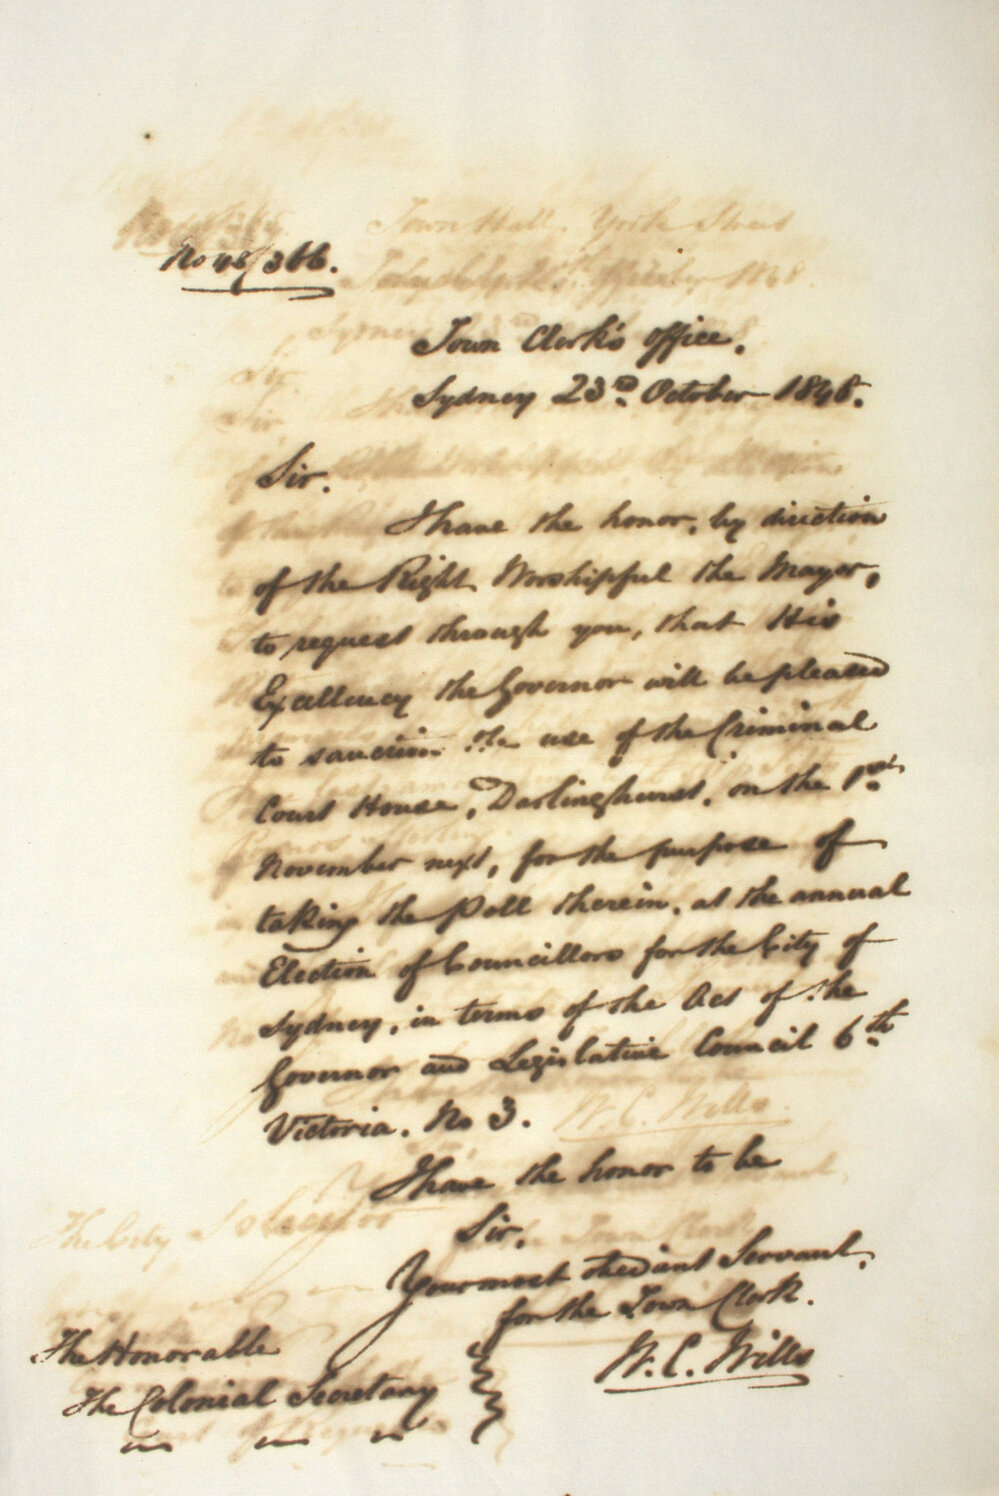 No 48/366.
Town Clerk's Office,
Sydney 23rd October 1848.
Sir.
I have the honor, by direction
of the Right Worshipful the Mayor,
to request through you, that His
Excellency the Governor will be pleased
to sanction the use of the Criminal
Court House, Darlinghurst, on the 1st
November next, for the purpose of
taking the Poll therein, at the annual
Election of Councillors for the City of
Sydney, in terms of the Act of the
Governor and Legislative Council 6th
Victoria. No 3.
I have the honor to be
Sir,
Your most obedient Servant,
for the Town Clerk.
W. C. Wills
The Honorable
The Colonial Secretary